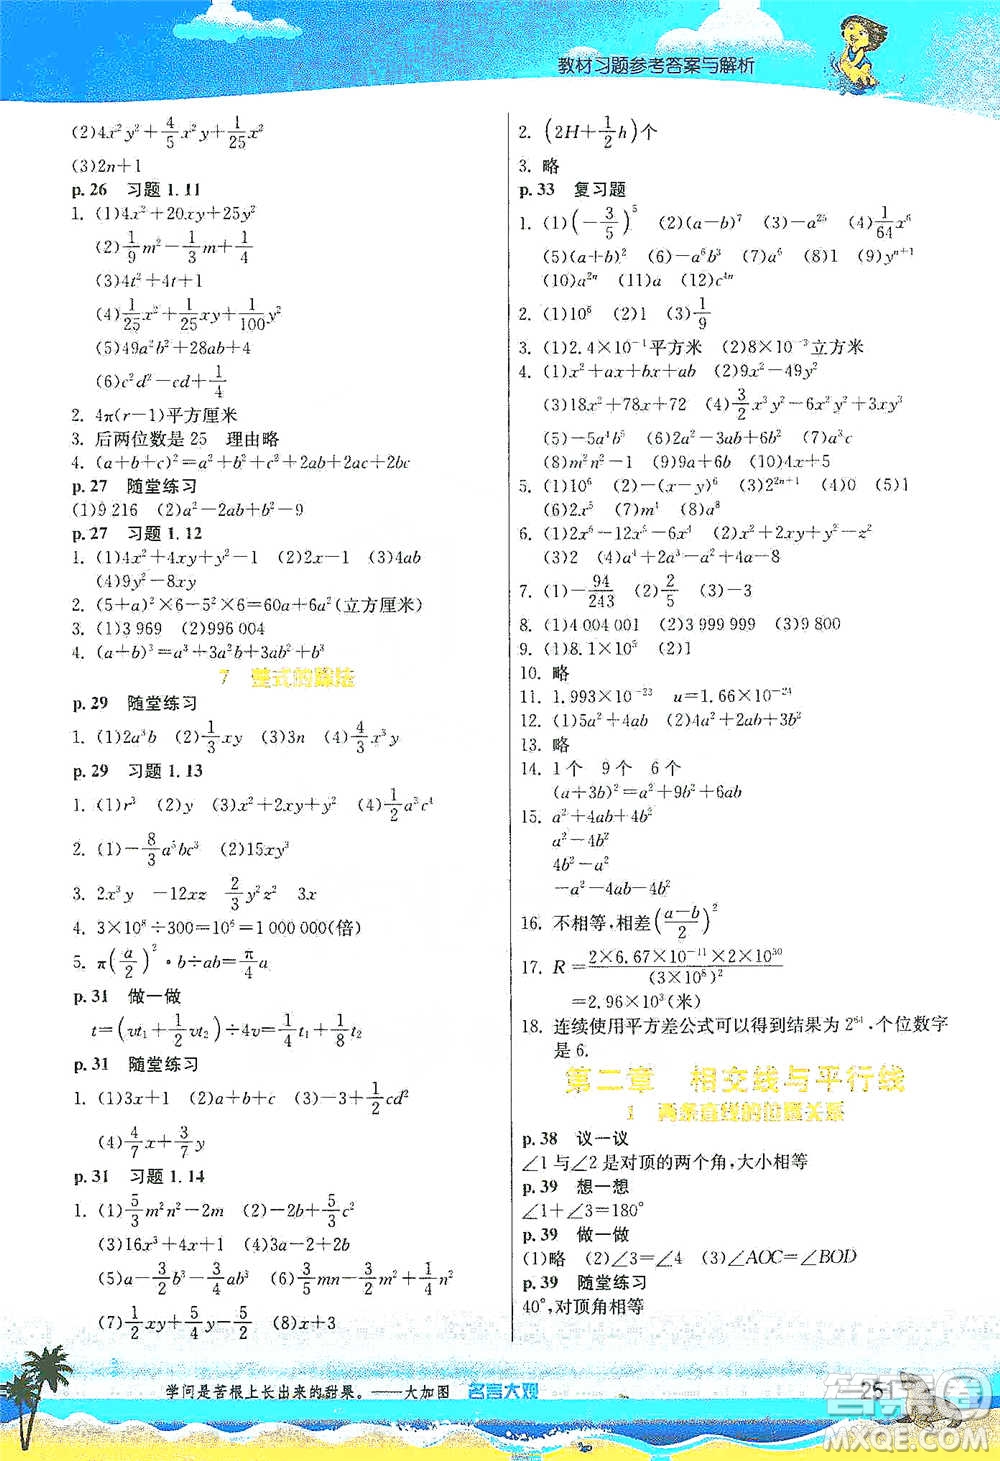 教材习题参考答案与解析
(2)4x²y²+4/5x²y+1/25x²
(3)2n+1
p.26 习题 1.11
1. (1)4x²+20xy+25y²
(2)1/9m²-1/3m+1/4
(3)4t²+4t+1
(4)1/25x²+1/25xy+1/100y²
(5)49a²b²+28ab+4
(6)c²d²-cd+1/4
2. 4π(r-1)平方厘米
3. 后两位数是 25 理由略
4. (a+b+c)²=a²+b²+c²+2ab+2ac+2bc
p.27 随堂练习
(1)9 216 (2)a²-2ab+b²-9
p.27 习题 1.12
1. (1)4x²+4xy+y²-1 (2)2x-1 (3)4xy
(4)9y²-8xy
2. (5+a)²×6-5²×6=60a+6a²(立方厘米)
3. (1)3 969 (2)996 004
4. (a+b)³=a³+3a²b+3ab²+b³
7 整式的除法
p.29 随堂练习
1. (1)2a³b (2)1/3xy (3)3n (4)4/3x³y
p.29 习题 1.13
1. (1)r³ (2)y (3)x²+2xy+y² (4)1/2a³c⁴
2. (1)-8/3a⁵bc³ (2)15xy³
3. 2x³y -12xz 2/3y²z² 3x
4. 3×10⁸÷300=10⁶=1 000 000(倍)
5. π(a/2)²·b÷ab=π/4a
p.31 做一做
t=(vt₁+1/2vt₂)÷4v=1/4t₁+1/8t₂
p.31 随堂练习
1. (1)3x+1 (2)a+b+c (3)-3+1/2cd²
(4)4/7x+3/7y
p.31 习题 1.14
1. (1)5/3m²n²-2m (2)-2b+5/3c²
(3)16x³-8x²+4x (4)3a-2b+1
(5)a-1/2b³-3/4ab³ (6)3/5mn-2/5m-4/5
(7)1/2xy+5/4y-5/2 (8)x+3
2. (2H+1/2h)个
3. 略
p.33 复习题
1. (1)(-3/5)⁵ (2)(a-b)⁷ (3)-a²⁵ (4)1/64x⁶
(5)(a+b)² (6)-a⁶b³ (7)a⁶ (8)1 (9)yⁿ⁺¹
(10)a²ⁿ (11)a (12)c⁴ⁿ
2. (1)10⁶ (2)1 (3)1/9
3. (1)2.4×10⁻¹平方米 (2)8×10⁻³立方米
4. (1)x²+ax+bx+ab (2)9x²-49y²
(3)18x²+78x+72 (4)3/2x³y²-6x²y²+3xy³
(5)-5a¹b⁵ (6)2a²-3ab+6b² (7)a³c
(8)m²n²-1 (9)4a²-b² (10)4x+5
5. (1)10⁶ (2)-(x-y)⁶ (3)2²ⁿ⁺¹ (4)0 (5)1
(6)2x⁵ (7)m¹ (8)a⁸
6. (1)2x⁶-12x⁵-6x⁴ (2)x²+y²-z²
(3)2 (4)a⁴+4a³-a²+4a-8
7. (1)-94/243 (2)2/5 (3)-3
8. (1)4 004 001 (2)3 999 999 (3)9 800
9. (1)8.1×10⁵ (2)1
10. 略
11. 1.993×10⁻²³ u=1.66×10⁻²⁴
12. (1)5a²+4ab (2)4a²+2ab+π/2b²
13. 略
14. 1个 9个 6个
(a+3b)²=a²+9b²+6ab
15. a²+4ab+4b²
a²-4b²
4b²-a²
-a²-4ab-4b²
16. 不相等,相差(a-b/2)²
17. R=2×6.67×10⁻¹¹×2×10³⁰/(3×10⁸)²
=2.96×10³(米)
18. 连续使用平方差公式可以得到结果为 2⁶⁴,个位数字
是 6.
第二章 相交线与平行线
1 两条直线的位置关系
p.38 议一议
∠1与∠2是对顶的两个角,大小相等
p.39 想一想
∠1+∠3=180°
p.39 做一做
(1)略 (2)∠3=∠4 (3)∠AOC=∠BOD
p.39 随堂练习
40°,对顶角相等
学问是苦根上长出来的甜果。——大加图 名言大观
25
答案圈
MXQE.COM